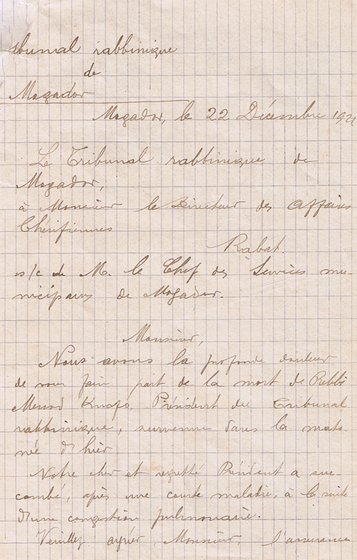 Tribunal rabbinique
de
Mogador
Mogador, le 22 Décembre 192
Le Tribunal rabbinique de
Mogador,
à Monsieur le Directeur des Affaires
Chérifiennes
Rabat
s/c de M. le Chef des Services mu-
nicipaux de Mogador.
Monsieur,
Nous avons la profonde douleur
de vous faire part de la mort de Rebbi
Messod Knafo, Président du Tribunal
rabbinique, survenue dans la mati-
née d'hier.
Notre cher et regretté Président a suc-
combé, après une courte maladie, à la suite
d'une congestion pulmonaire.
Veuillez agréer, Monsieur l'assurance